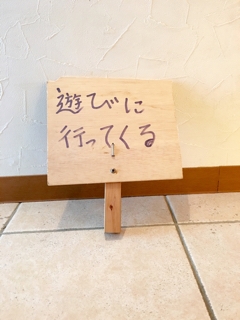 遊びに
行ってくる